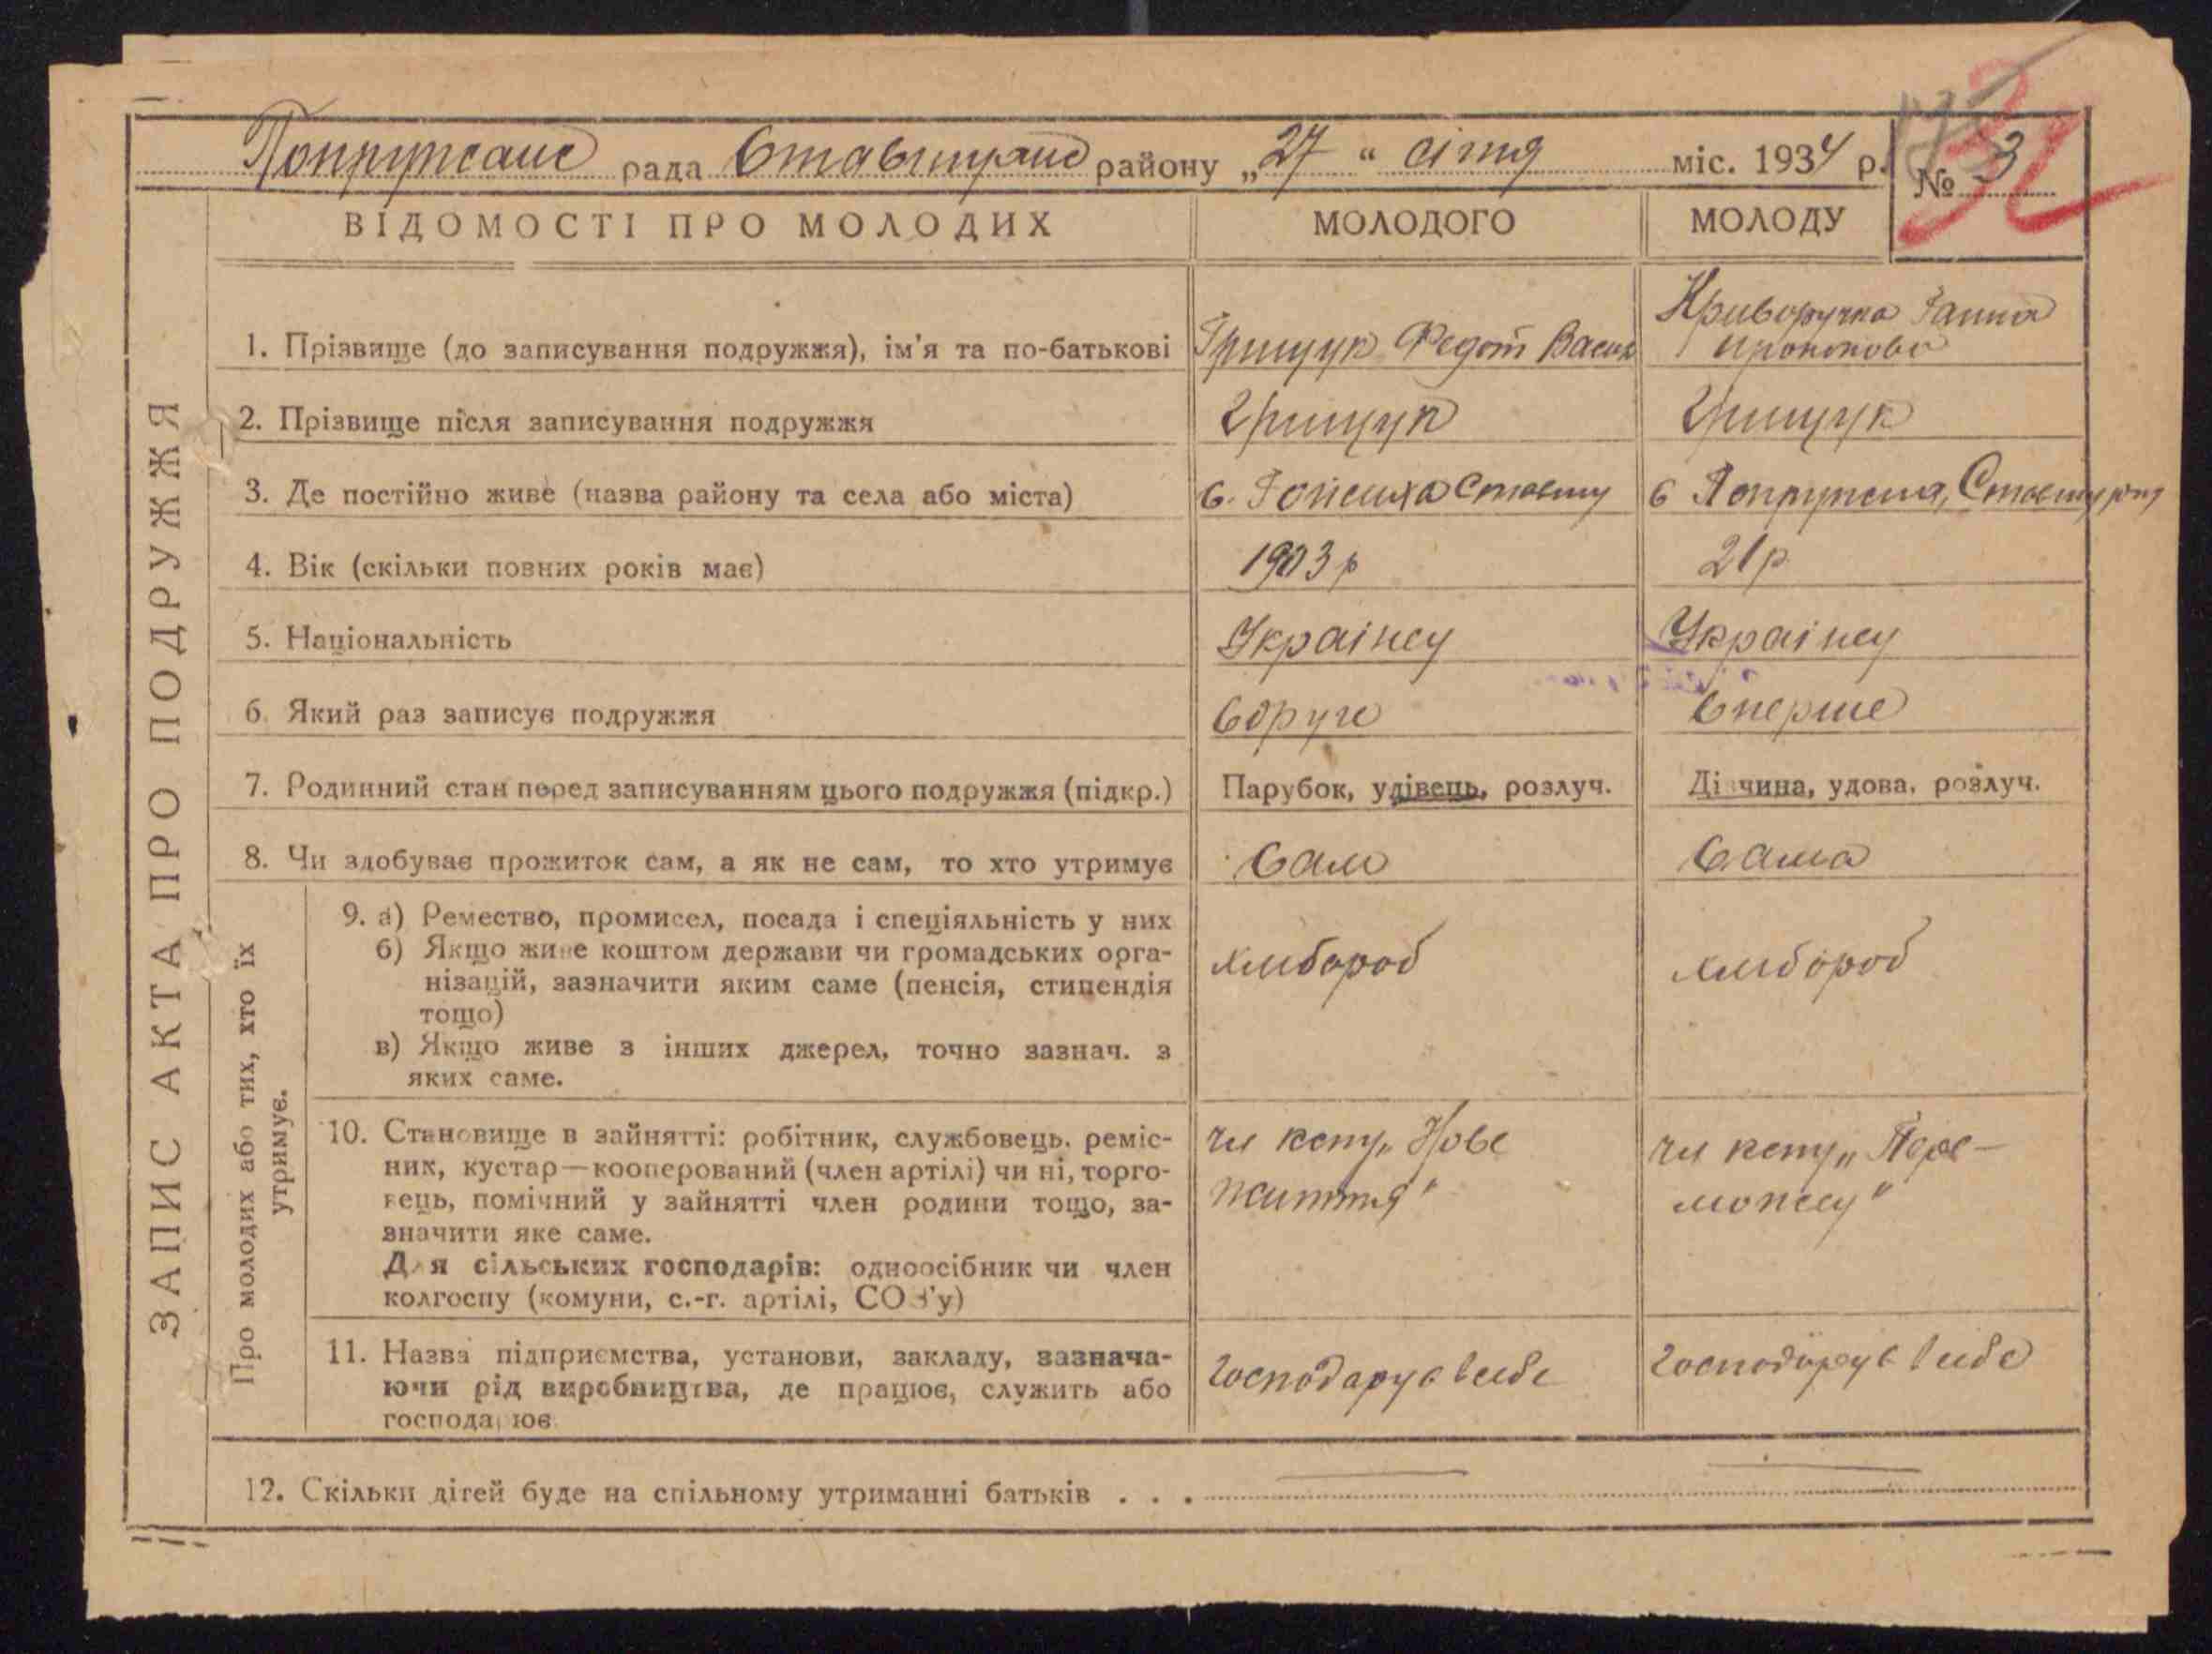 Попружанс рада Ставищанс району „27" січня міс. 1934 р. № 3
32
ВІДОМОСТІ ПРО МОЛОДИХ МОЛОДОГО МОЛОДУ
ЗАПИС АКТА ПРО ПОДРУЖЖЯ
1. Прізвище (до записування подружжя), ім'я та по-батькові Грищук Федот Васил Криворучка Ганна Прокопова
2. Прізвище після записування подружжя Грищук Грищук
3. Де постійно живе (назва району та села або міста) с. Гейсиха Ставищ с Попружна, Ставищ р-ну
4. Вік (скільки повних років має) 1903 р 21 р
5. Національність Українец Українец
6. Який раз записує подружжя Вдруге Вперше
7. Родинний стан перед записуванням цього подружжя (підкр.) Парубок, удівець, розлуч. Дівчина, удова, розлуч.
8. Чи здобуває прожиток сам, а як не сам, то хто утримує Сам Сама
Про молодих або тих, хто їх
утримує.
9. а) Ремество, промисел, посада і спеціяльність у них
б) Якщо живе коштом держави чи громадських орга-
нізацій, зазначити яким саме (пенсія, стипендія
тощо)
в) Якщо живе з інших джерел, точно зазнач. з
яких саме.
хлібороб хлібороб
10. Становище в зайнятті: робітник, службовець, реміс-
ник, кустар—кооперований (член артілі) чи ні, торго-
вець, помічний у зайнятті член родини тощо, за-
значити яке саме.
Для сільських господарів: одноосібник чи член
колгоспу (комуни, с.-г. артілі, СОЗ'у)
чл кспу „Нове
життя"
чл кспу „Пере-
можец"
11. Назва підприємства, установи, закладу, зазнача-
ючи рід виробництва, де працює, служить або
господарює
господарує в себе господарує в себе
12. Скільки дітей буде на спільному утриманні батьків . . .